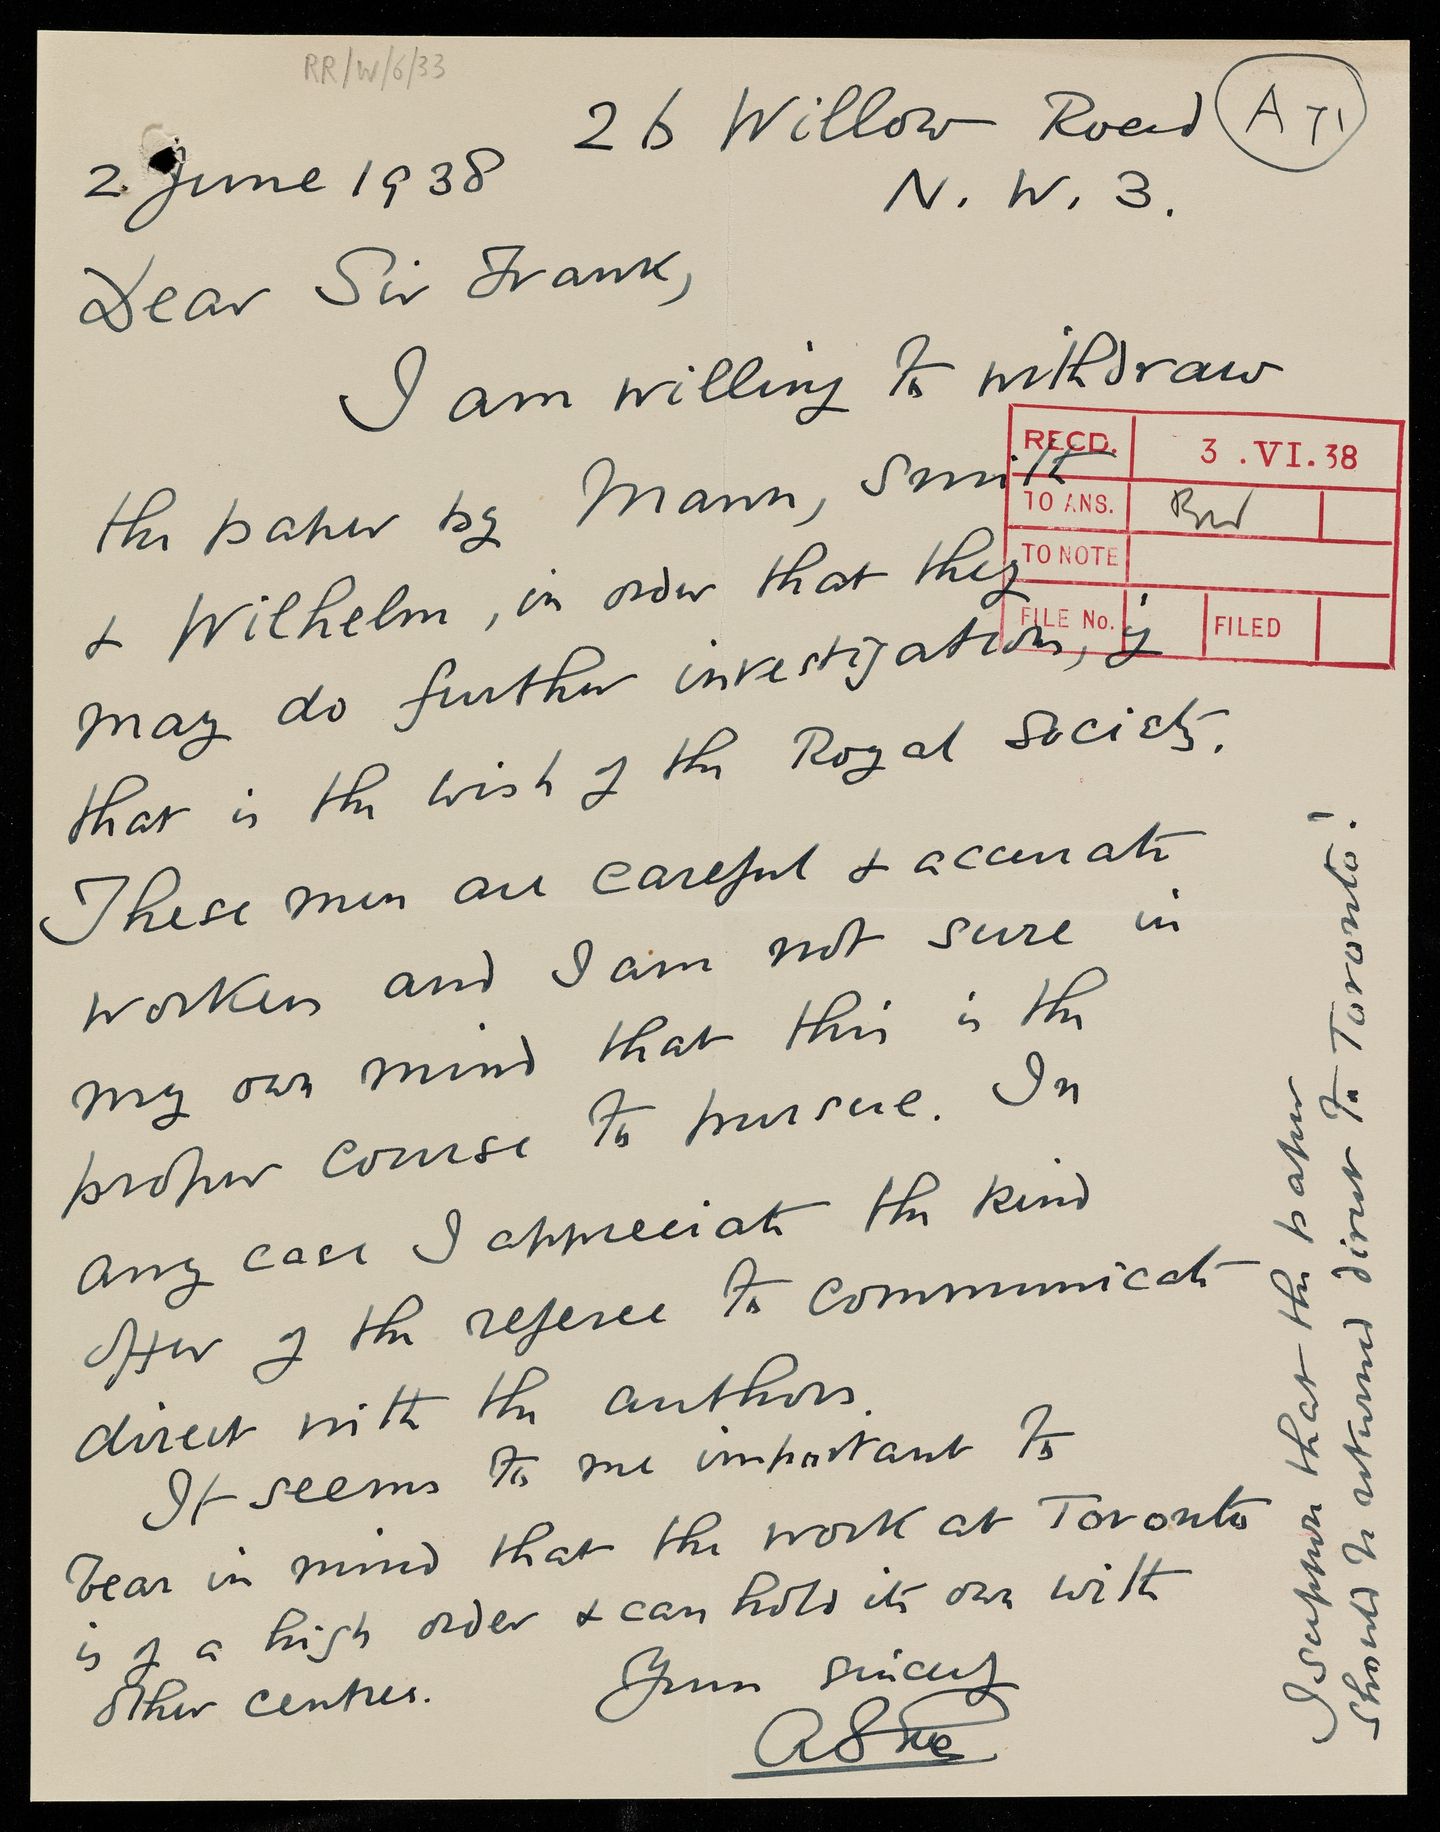 RR/W/6/33
26 Willow Road
A 71
N. W. 3.
2. June 1938
Dear Sir Frank,
I am willing to withdraw
the paper by Mann, Smith
& Wilhelm, in order that they
may do further investigation, if
that is the wish of the Royal Society.
These men are careful & accurate
workers and I am not sure in
my own mind that this is the
proper course to pursue. In
any case I appreciate the kind
offer of the referee to communicate
direct with the authors.
It seems to me important to
bear in mind that the work at Toronto
is of a high order & can hold its own with
other centres.
Yours sincerely
I suppose that the paper
should be returned direct to Toronto!
RECD. 3 . VI. 38
TO ANS.
TO NOTE
FILE No. FILED